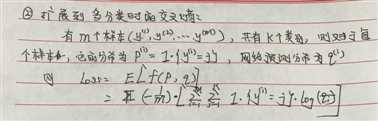 ② 扩展到多分类时的交叉熵:
有 m 个样本 (y⁽¹⁾, y⁽²⁾ ... y⁽ᵐ⁾), 共有 K 个类别, 则对于每
个样本, 真实分布为 P⁽ⁱ⁾ = 1·{y⁽ⁱ⁾ = j}, 网络预测分布为 q⁽ⁱ⁾
则 Loss = E[f(P, q)]
= (-1/m)·[∑ ∑ 1·{y⁽ⁱ⁾ = j}·log(qᵢ)]